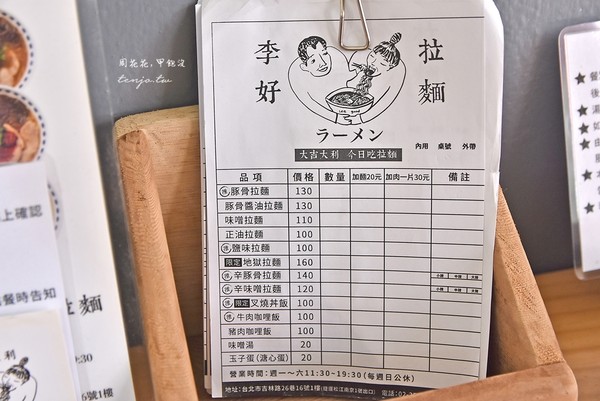 周花花，甲飽沒
tenjo.tw
李好 拉麵
ラーメン
大吉大利 今日吃拉麵
內用 桌號 外帶
品項 價格 數量 加麵20元 加肉一片30元 備註
推 豚骨拉麵 130
豚骨醬油拉麵 130
味噌拉麵 110
正油拉麵 100
推 鹽味拉麵 100
限定 地獄拉麵 160
推 辛豚骨拉麵 140 小辣 中辣 大辣
推 辛味噌拉麵 120 小辣 中辣 大辣
推 限定 叉燒丼飯 100
推 牛肉咖哩飯 100
豬肉咖哩飯 100
味噌湯 20
玉子蛋(溏心蛋) 20
營業時間：週一～六11:30~19:30(每週日公休)
地址：台北市吉林路26巷16號1樓(捷運松江南京1號出口) 電話：02-
上確認
餐時告知
拉麵
:30
6號1樓
利
★餐
後
★湯
★如
★由